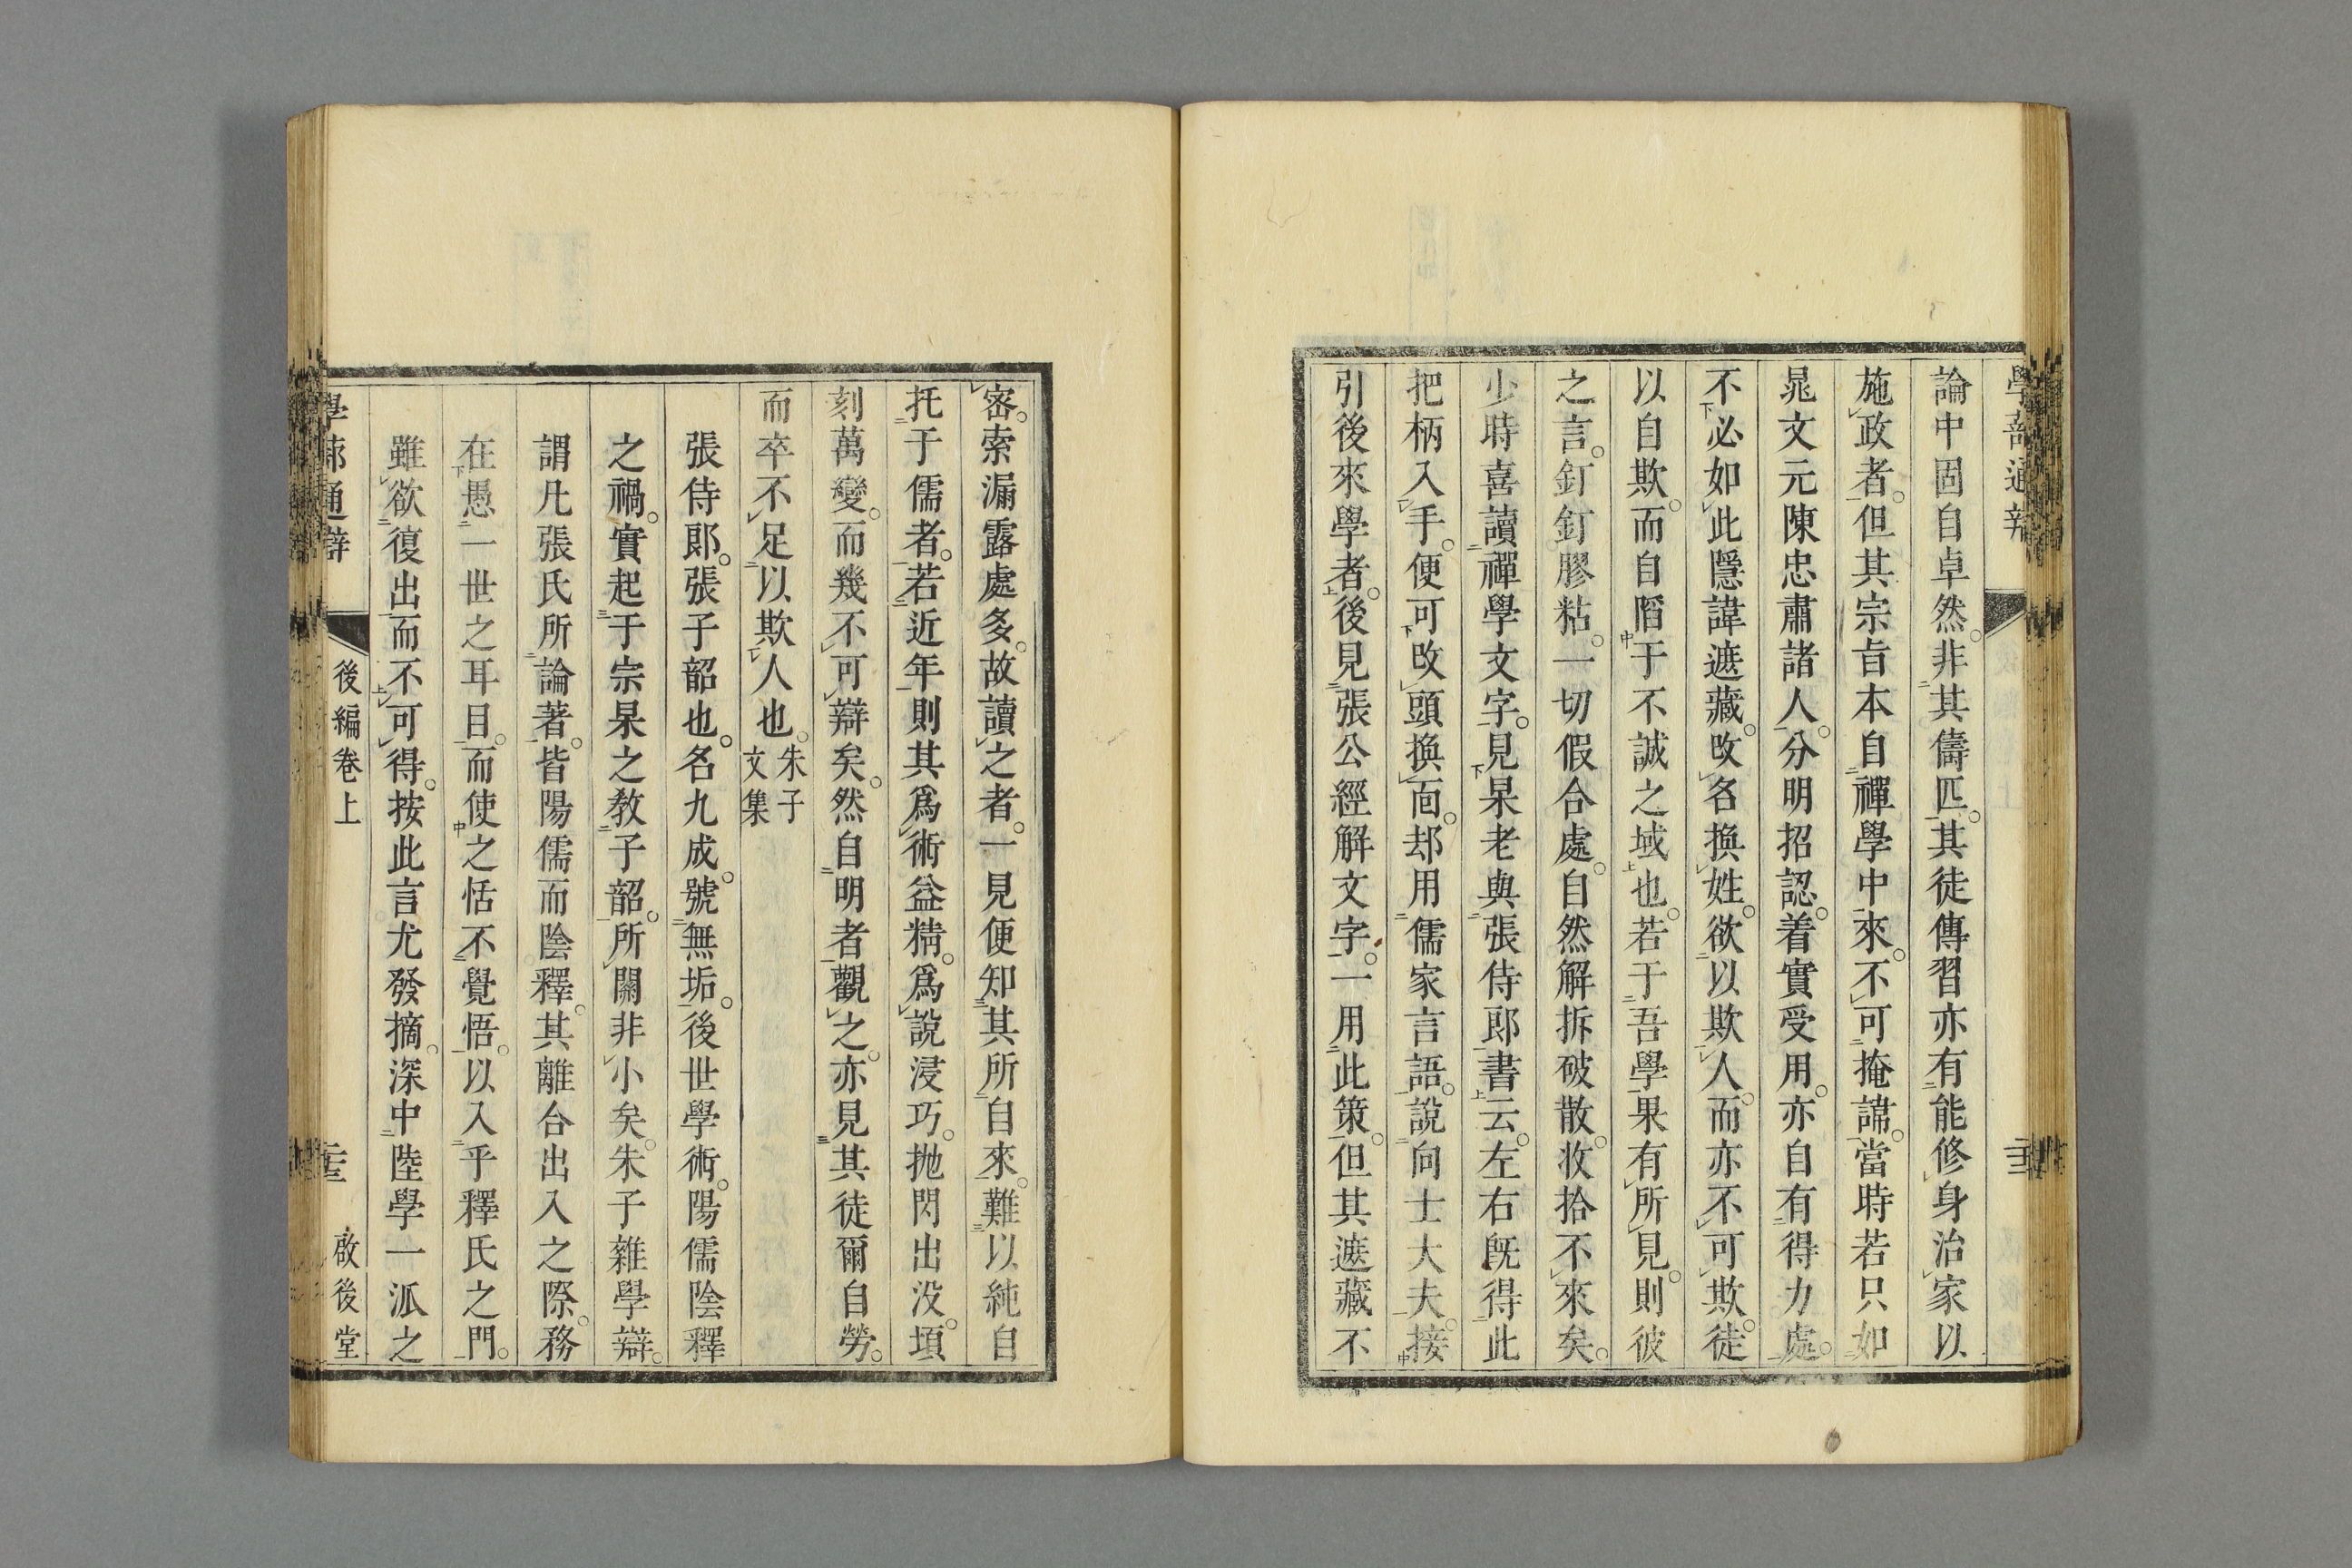 學蔀通辨
論中固自卓然。非其儔匹。其徒傳習亦有能修身治家以
施政者。但其宗旨本自禪學中來。不可掩諱。當時若只如
晁文元陳忠肅諸人。分明招認着實受用。亦自有得力處。
不必如此隱諱遮藏。改名換姓。欲以欺人。而亦不可欺。徒
以自欺。而自陷于不誠之域也。若于吾學果有所見。則彼
之言。釘釘膠粘。一切假合處。自然解拆破散。收拾不來矣。
少時喜讀禪學文字。見杲老與張侍郎書云。左右既得此
把柄入手。便可改頭換面。却用儒家言語。說向士大夫。接
引後來學者。後見張公經解文字。一用此策。但其遮藏不
密。索漏露處多。故讀之者。一見便知其所自來。難以純自
托于儒者。若近年則其爲術益精。爲說浸巧。拋閃出没。頃
刻萬變。而幾不可辯矣。然自明者觀之。亦見其徒爾自勞。
而卒不足以欺人也。朱子文集
張侍郎。張子韶也。名九成。號無垢。後世學術。陽儒陰釋
之禍。實起于宗杲之教子韶。所關非小矣。朱子雜學辯。
謂凡張氏所論著。皆陽儒而陰釋。其離合出入之際。務
在愚一世之耳目。而使之恬不覺悟。以入乎釋氏之門。
雖欲復出而不可得。按此言尤發摘。深中陸學一派之
學蔀通辯 後編卷上 啟後堂